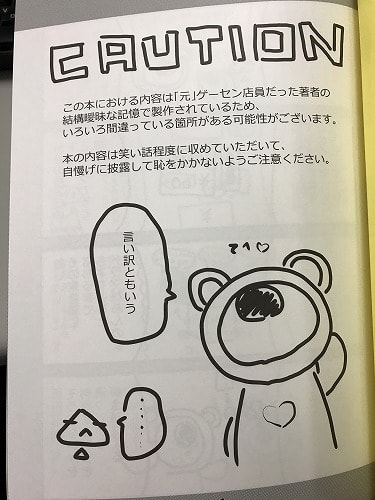 CAUTION
この本における内容は「元」ゲーセン店員だった著者の
結構曖昧な記憶で製作されているため、
いろいろ間違っている箇所がある可能性がございます。
本の内容は笑い話程度に収めていただいて、
自慢げに披露して恥をかかないようご注意ください。
言い訳ともいう
てへ♡
……